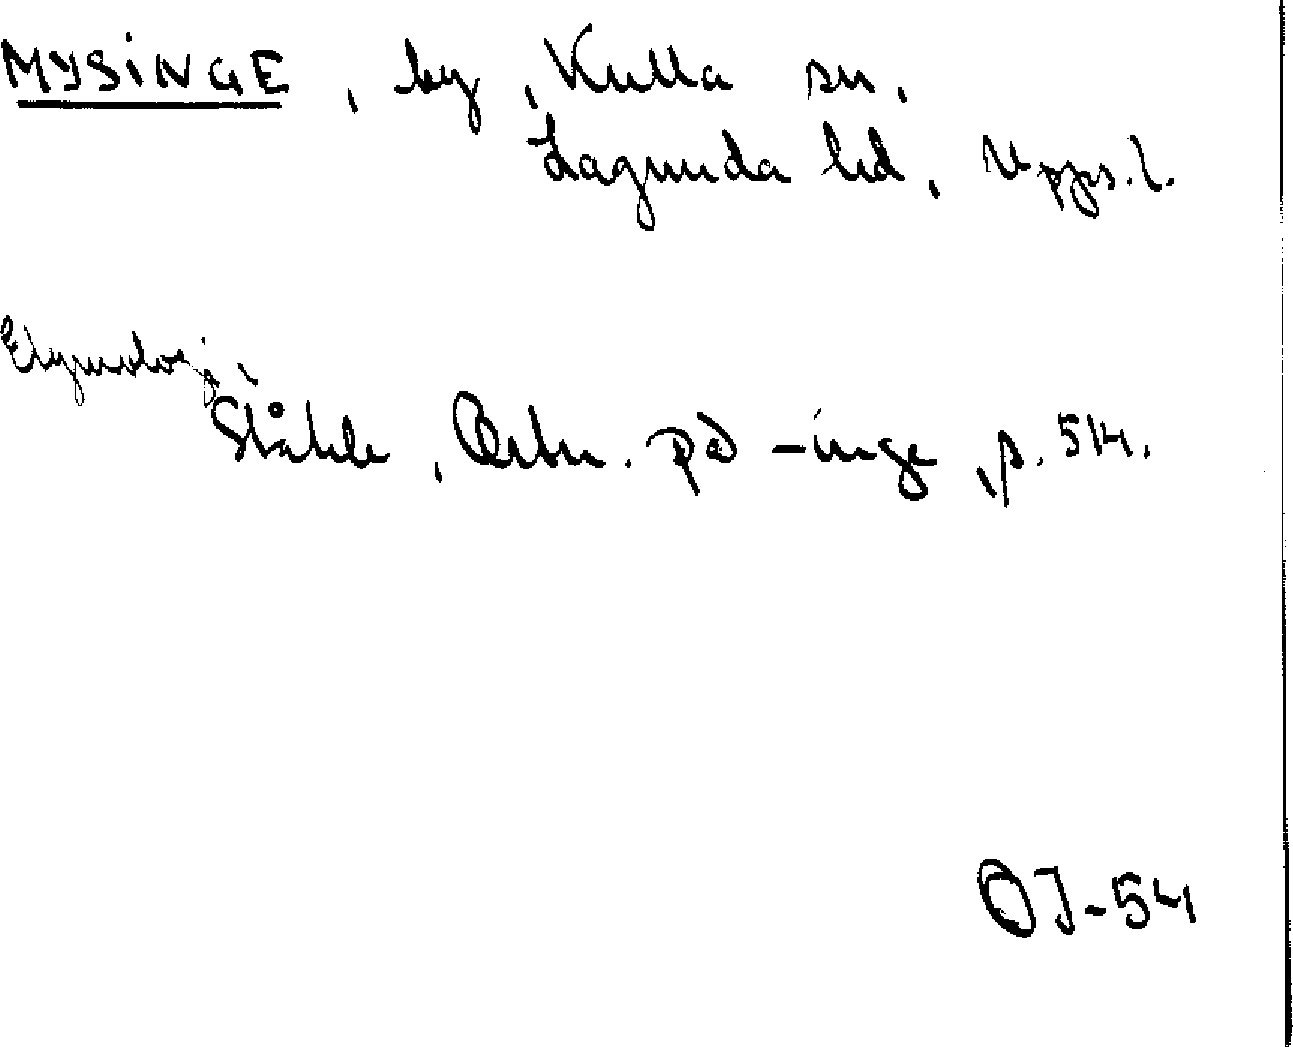 MYSINGE, by, Kulla sn,
Lagunda hd, Upps. l.
Etymologi:
Ståhle, Ortn. på -inge, s. 514.
OJ-54